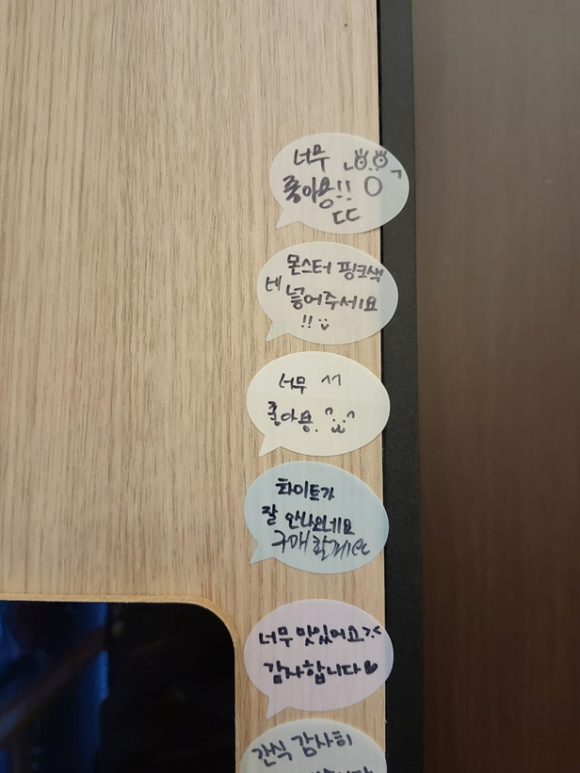 너무
좋아용!!
ㄷㄷ
몬스터 핑크색
넣어주세요
!!
너무 ^^
좋아용
화이트가
잘 안나오네요
구매
너무 맛있어요
감사합니다♥
간식 감사히